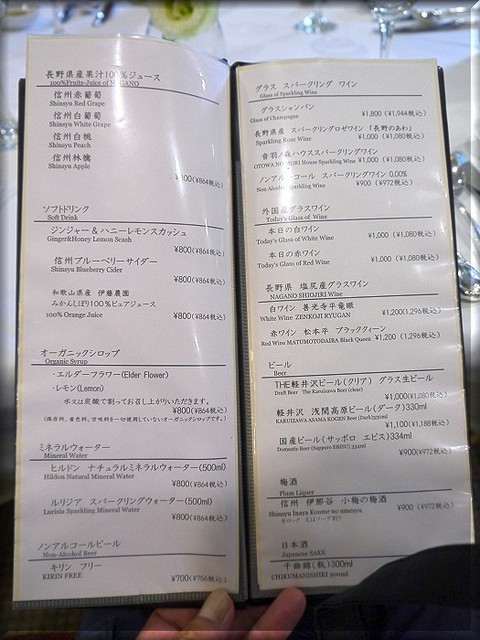 長野県産果汁100%ジュース
100%Fruits-Juice of NAGANO
信州赤葡萄
Shinsyu Red Grape
信州白葡萄
Shinsyu White Grape
信州白桃
Shinsyu Peach
信州林檎
Shinsyu Apple
¥800(¥864税込)
ソフトドリンク
Soft Drink
ジンジャー＆ハニーレモンスカッシュ
Ginger&Honey Lemon Scash
¥800(¥864税込)
信州ブルーベリーサイダー
Shinsyu Blueberry Cider
¥800(¥864税込)
和歌山県産 伊藤農園
みかんしぼり100%ピュアジュース
100% Orange Juice ¥800(¥864税込)
オーガニックシロップ
Organic Syrup
・エルダーフラワー(Elder Flower)
・レモン(Lemon)
水又は炭酸で割ってお召し上がりいただきます。
¥800(¥864税込)
(保存料、着色料、甘味料を一切使用していないオーガニックシロップです。)
ミネラルウォーター
Mineral Water
ヒルドン ナチュラルミネラルウォーター(500ml)
Hildon Natural Mineral Water
¥800(¥864税込)
ルリジア スパークリングウォーター(500ml)
Larisia Sparkling Mineral Water
¥800(¥864税込)
ノンアルコールビール
Non-Alcohol Beer
キリン フリー
KIRIN FREE ¥700(¥756税込)
グラス スパークリング ワイン
Glass of Sparkling Wine
グラスシャンパン
Glass of Champagne ¥1,800 (¥1,944税込)
長野県産 スパークリングロゼワイン「長野のあわ」
Sparkling Rose Wine ¥1,000 (¥1,080税込)
音羽ノ森ハウススパークリングワイン
OTOWA NO MORI House Sparkling Wine ¥1,000 (¥1,080税込)
ノンアルコール スパークリングワイン 0.00%
Non Alcohol Sparkling Wine ¥900 (¥972税込)
外国産グラスワイン
Today's Glass of Wine
本日の白ワイン
Today's Glass of White Wine ¥1,000 (¥1,080税込)
本日の赤ワイン
Today's Glass of Red Wine ¥1,000 (¥1,080税込)
長野県 塩尻産グラスワイン
NAGANO SHIOJIRI Wine
白ワイン 善光寺平竜眼
White Wine ZENKOJI RYUGAN ¥1,200(1,296税込)
赤ワイン 松本平 ブラッククィーン
Red Wine MATUMOTODAIRA Black Queen ¥1,200 (1,296税込)
ビール
Beer
THE軽井沢ビール(クリア) グラス生ビール
Draft Beer The Karuizawa Beer (clear)
¥1,000(¥1,080税込)
軽井沢 浅間高原ビール(ダーク)330ml
KARUIZAWA ASAMA KOGEN Beer (Dark)330ml
¥1,100(¥1,188税込)
国産ビール(サッポロ エビス)334ml
Domestic Beer (Sapporo EBISU) 334ml
¥900(¥972税込)
梅酒
Plum Liquer
信州 伊那谷 小梅の梅酒
Shinsyu Inaya Koume no umesyu ¥900 (¥972税込)
日本酒
Japanese SAKE
千曲錦(瓶)300ml
CHIKUMANISHIKI 300ml